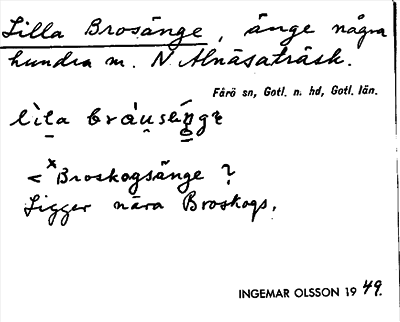 Lilla Brosänge, änge några
hundra m. N Alnäsaträsk.
Fårö sn, Gotl. n. hd, Gotl. län.
< *Broskogsänge ?
Ligger nära Broskogs.
INGEMAR OLSSON 19 49.